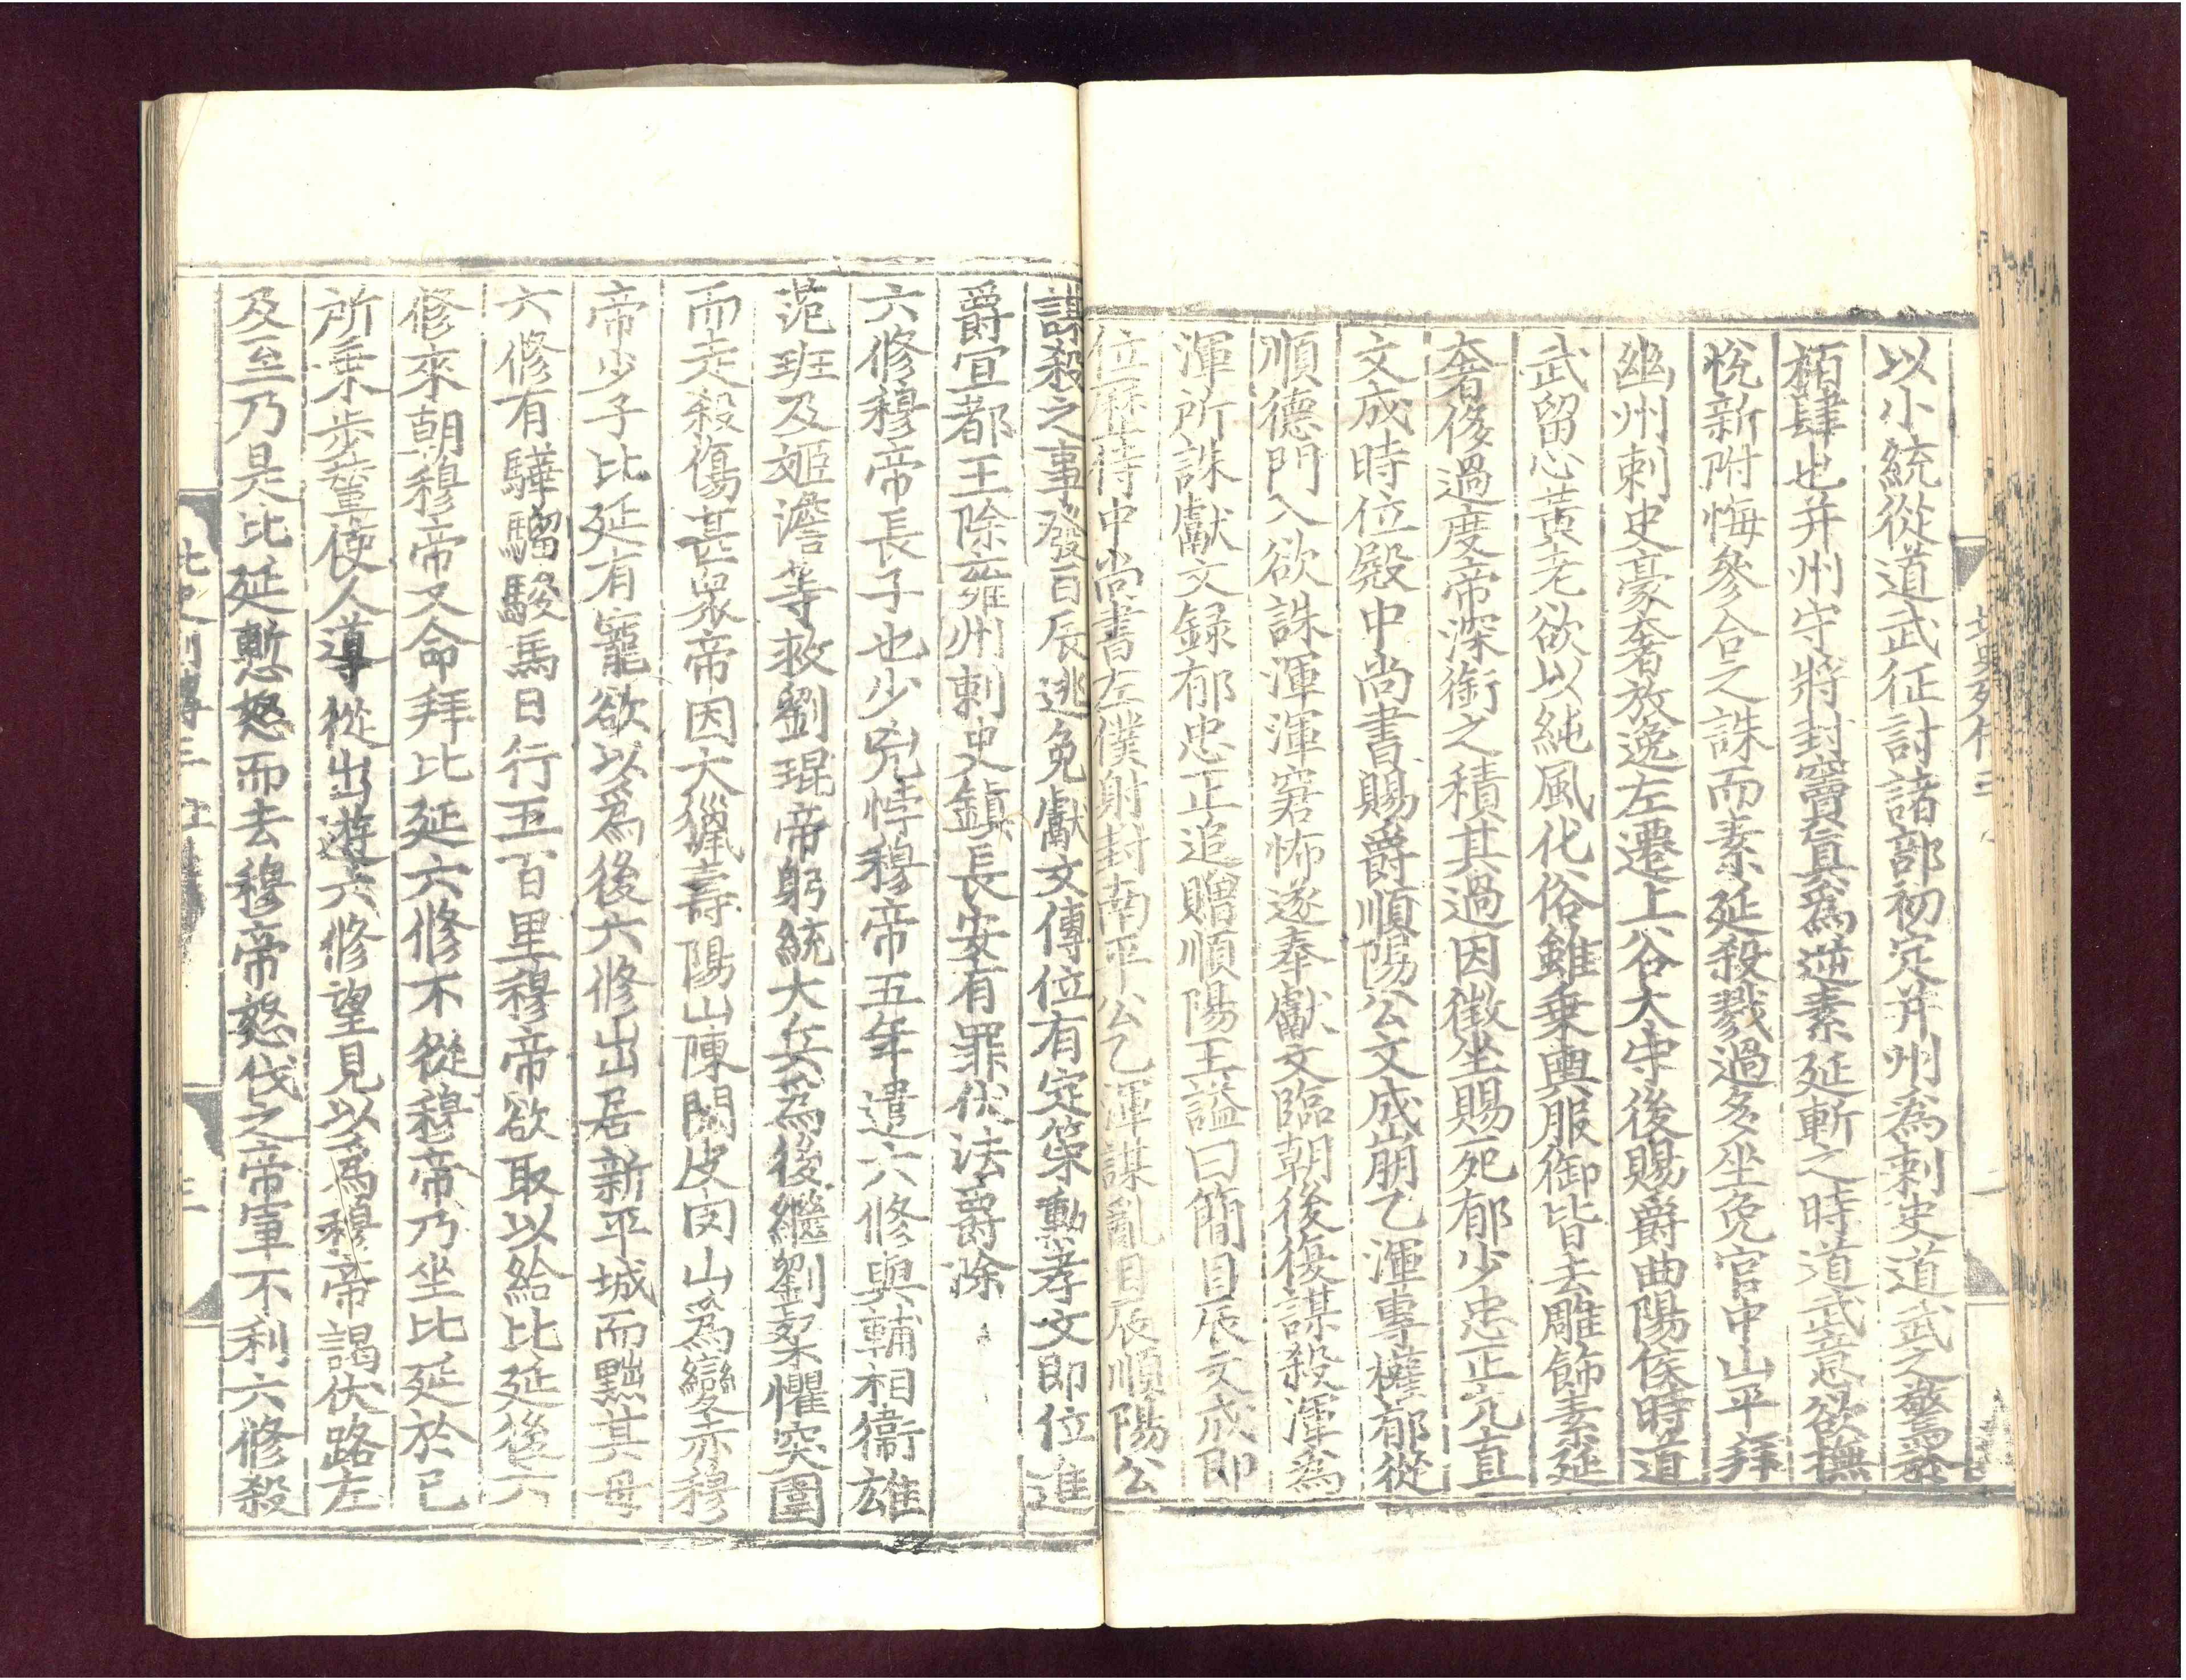 以小統從道武征討諸部初定并州爲刺史道武之驚於
栢肆也并州守將封竇眞爲逆素延斬之時道武意欲撫
悅新附悔參合之誅而素延殺戮過多坐免官中山平拜
幽州刺史豪奢放逸左遷上谷太守後賜爵曲陽侯時道
武留心黃老欲以純風化俗雖乗輿服御皆去雕飾素延
奢侈過度帝深銜之積其過因徵坐賜死郁少忠正亢直
文成時位殿中尚書賜爵順陽公文成崩乙渾專權郁從
順德門入欲誅渾渾窘怖遂奉獻文臨朝後復謀殺渾爲
渾所誅獻文録郁忠正追贈順陽王謚曰簡目辰文成即
位歷侍中尚書左僕射封南平公乙渾謀亂目辰順陽公
謀殺之事發目辰逃免獻文傳位有定策勲孝文即位進
爵宜都王除雍州刺史鎮長安有罪伏法爵除
六修穆帝長子也少兇悖穆帝五年遣六修與輔相衞雄
范班及姬澹等救劉琨帝躬統大兵爲後繼劉粲懼突圍
而走殺傷甚衆帝因大獵壽陽山陳閱皮肉山爲變赤穆
帝少子比延有寵欲以爲後六修出居新平城而黜其母
六修有驊騮駿馬日行五百里穆帝欲取以給比延後六
修來朝穆帝又命拜比延六修不從穆帝乃坐比延於己
所乗步輦使人導從出遊六修望見以爲穆帝謁伏路左
及至乃是比延慙怒而去穆帝怒伐之帝軍不利六修殺
北史列傳三
三